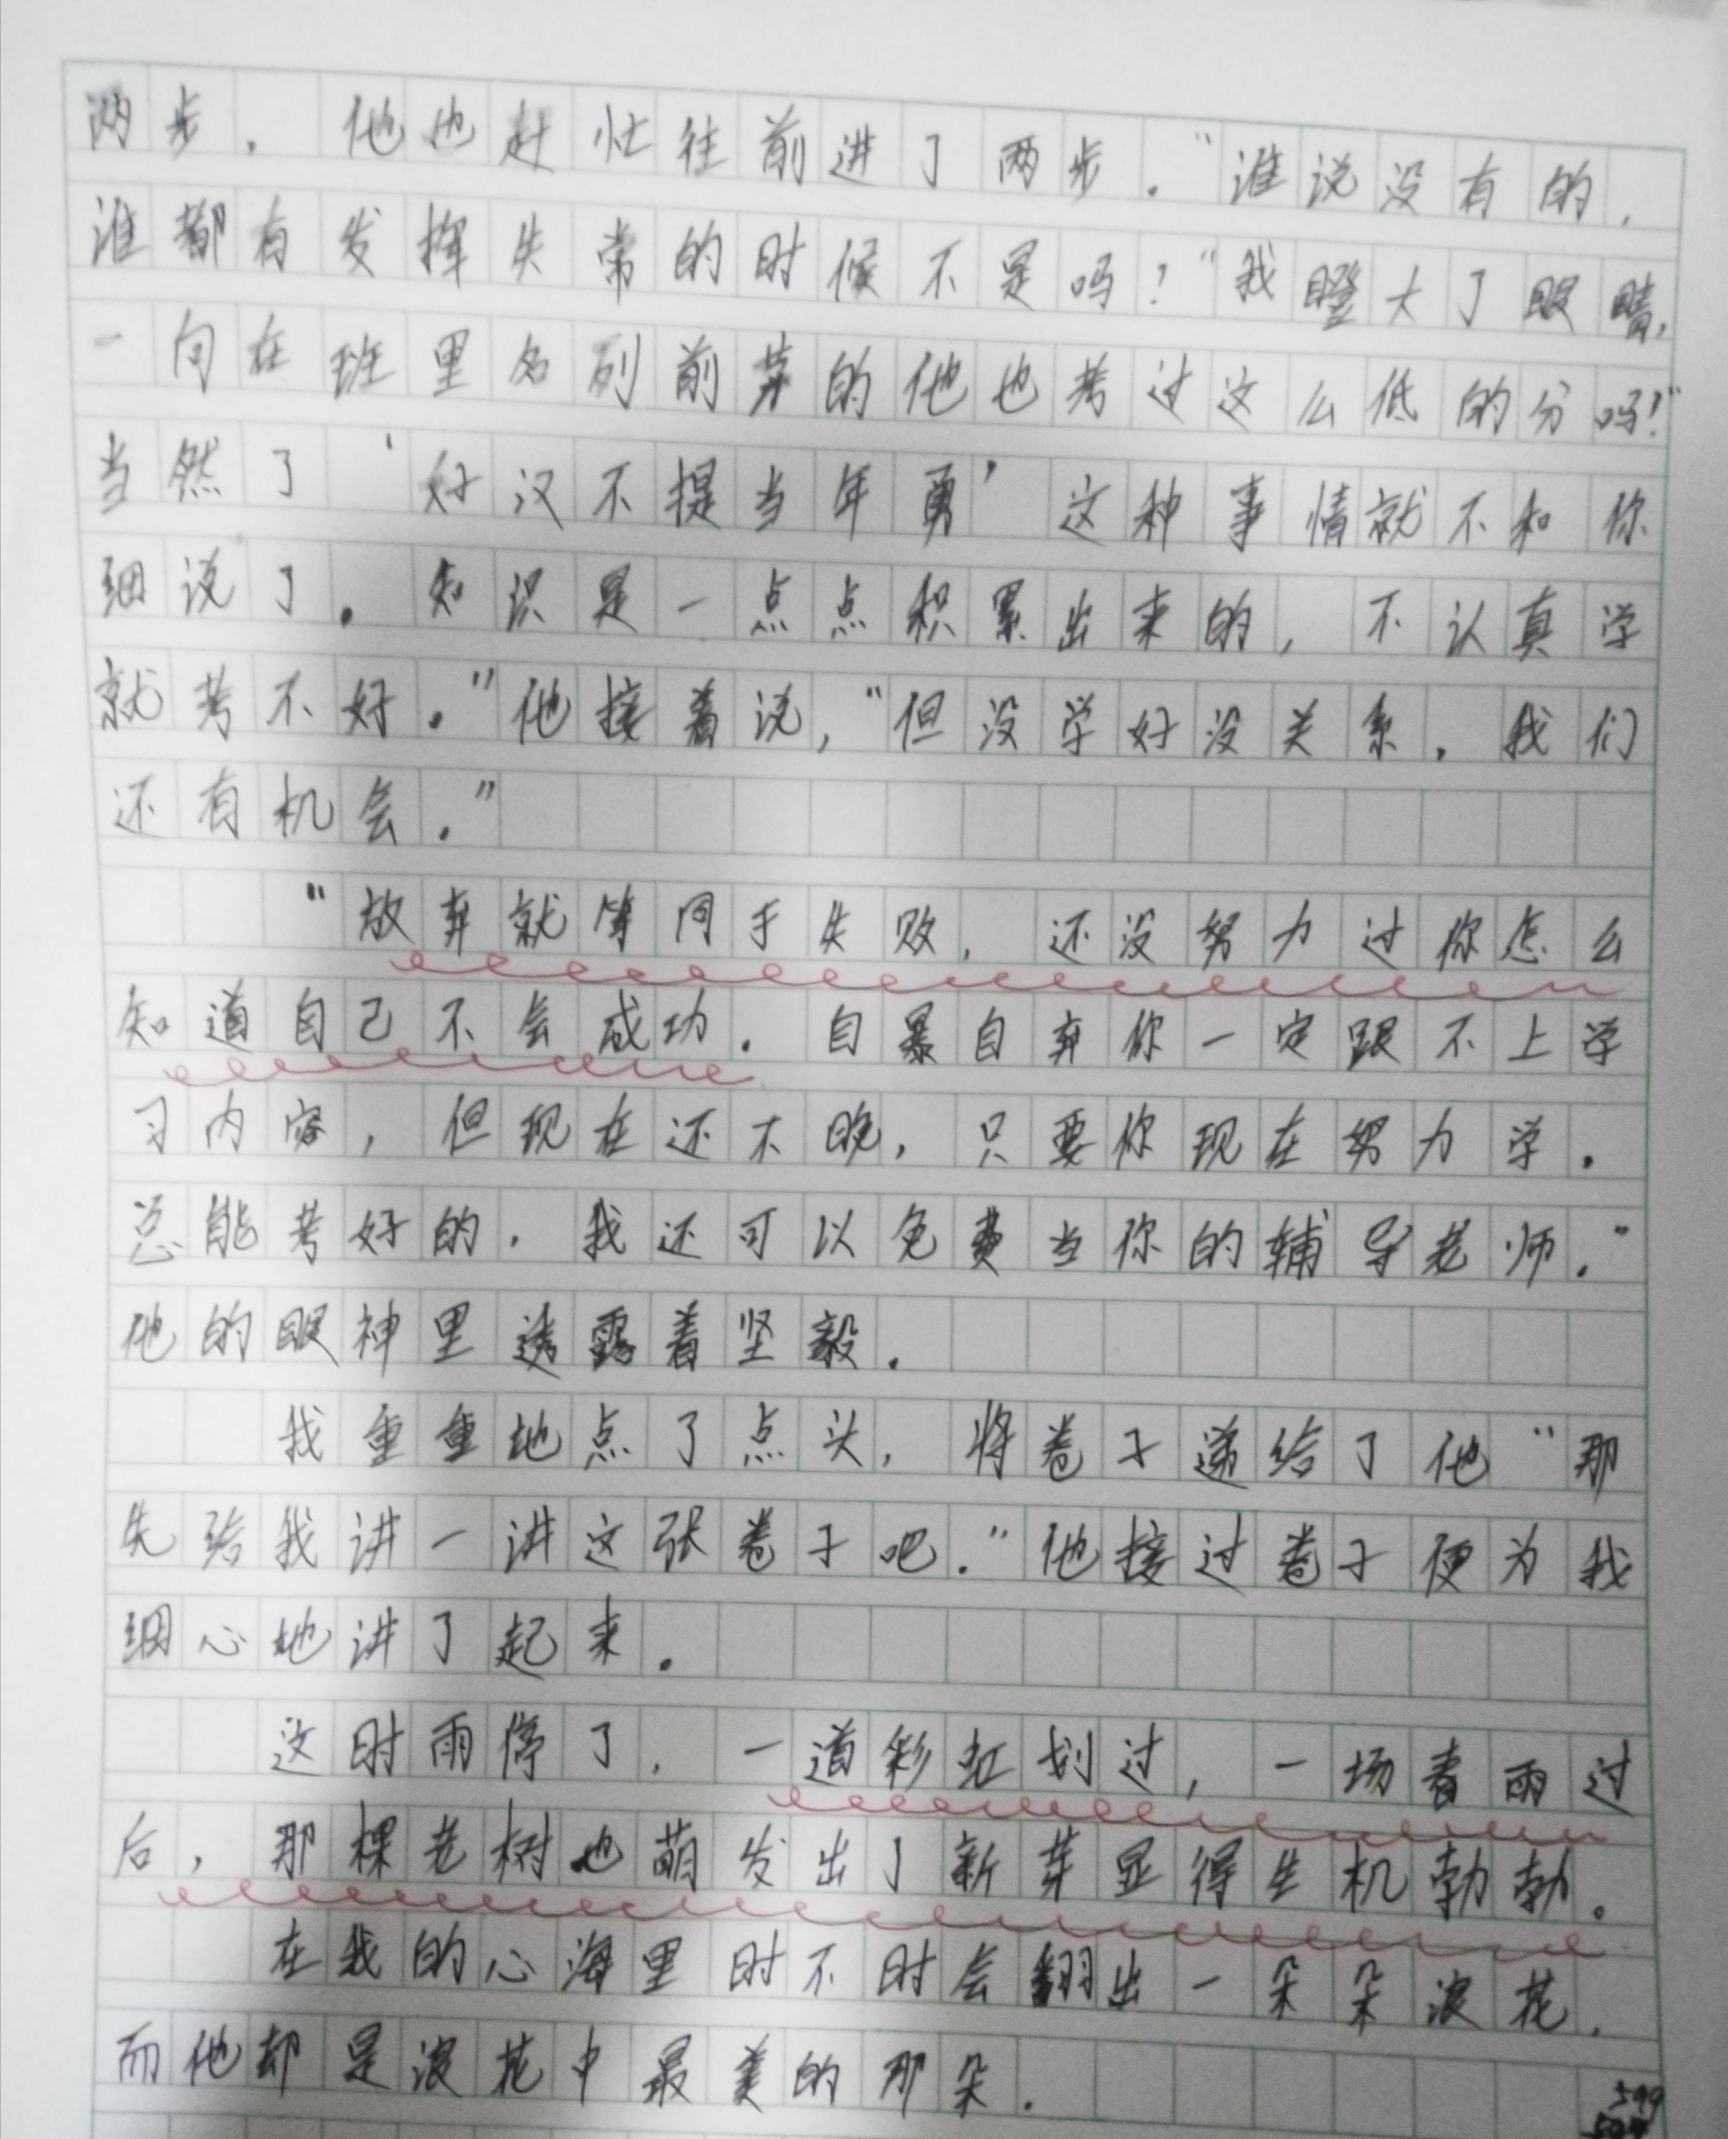 两步，他也赶忙往前进了两步．“谁说没有的，
谁都有发挥失常的时候不是吗？“我瞪大了眼睛，
一向在班里名列前茅的他也考过这么低的分吗！“
当然了‘好汉不提当年勇’这种事情就不和你
细说了．知识是一点点积累出来的，不认真学
就考不好．”他接着说，“但没学好没关系，我们
还有机会．”
“放弃就等同于失败，还没努力过你怎么
知道自己不会成功．自暴自弃你一定跟不上学
习内容，但现在还不晚，只要你现在努力学．
总能考好的，我还可以免费当你的辅导老师．”
他的眼神里透露着坚毅．
我重重地点了点头，将卷子递给了他“那
先给我讲一讲这张卷子吧．”他接过卷子便为我
细心地讲了起来．
这时雨停了，一道彩虹划过，一场春雨过
后，那棵老树也萌发出了新芽显得生机勃勃．
在我的心海里时不时会翻出一朵朵浪花，
而他却是浪花中最美的那朵．